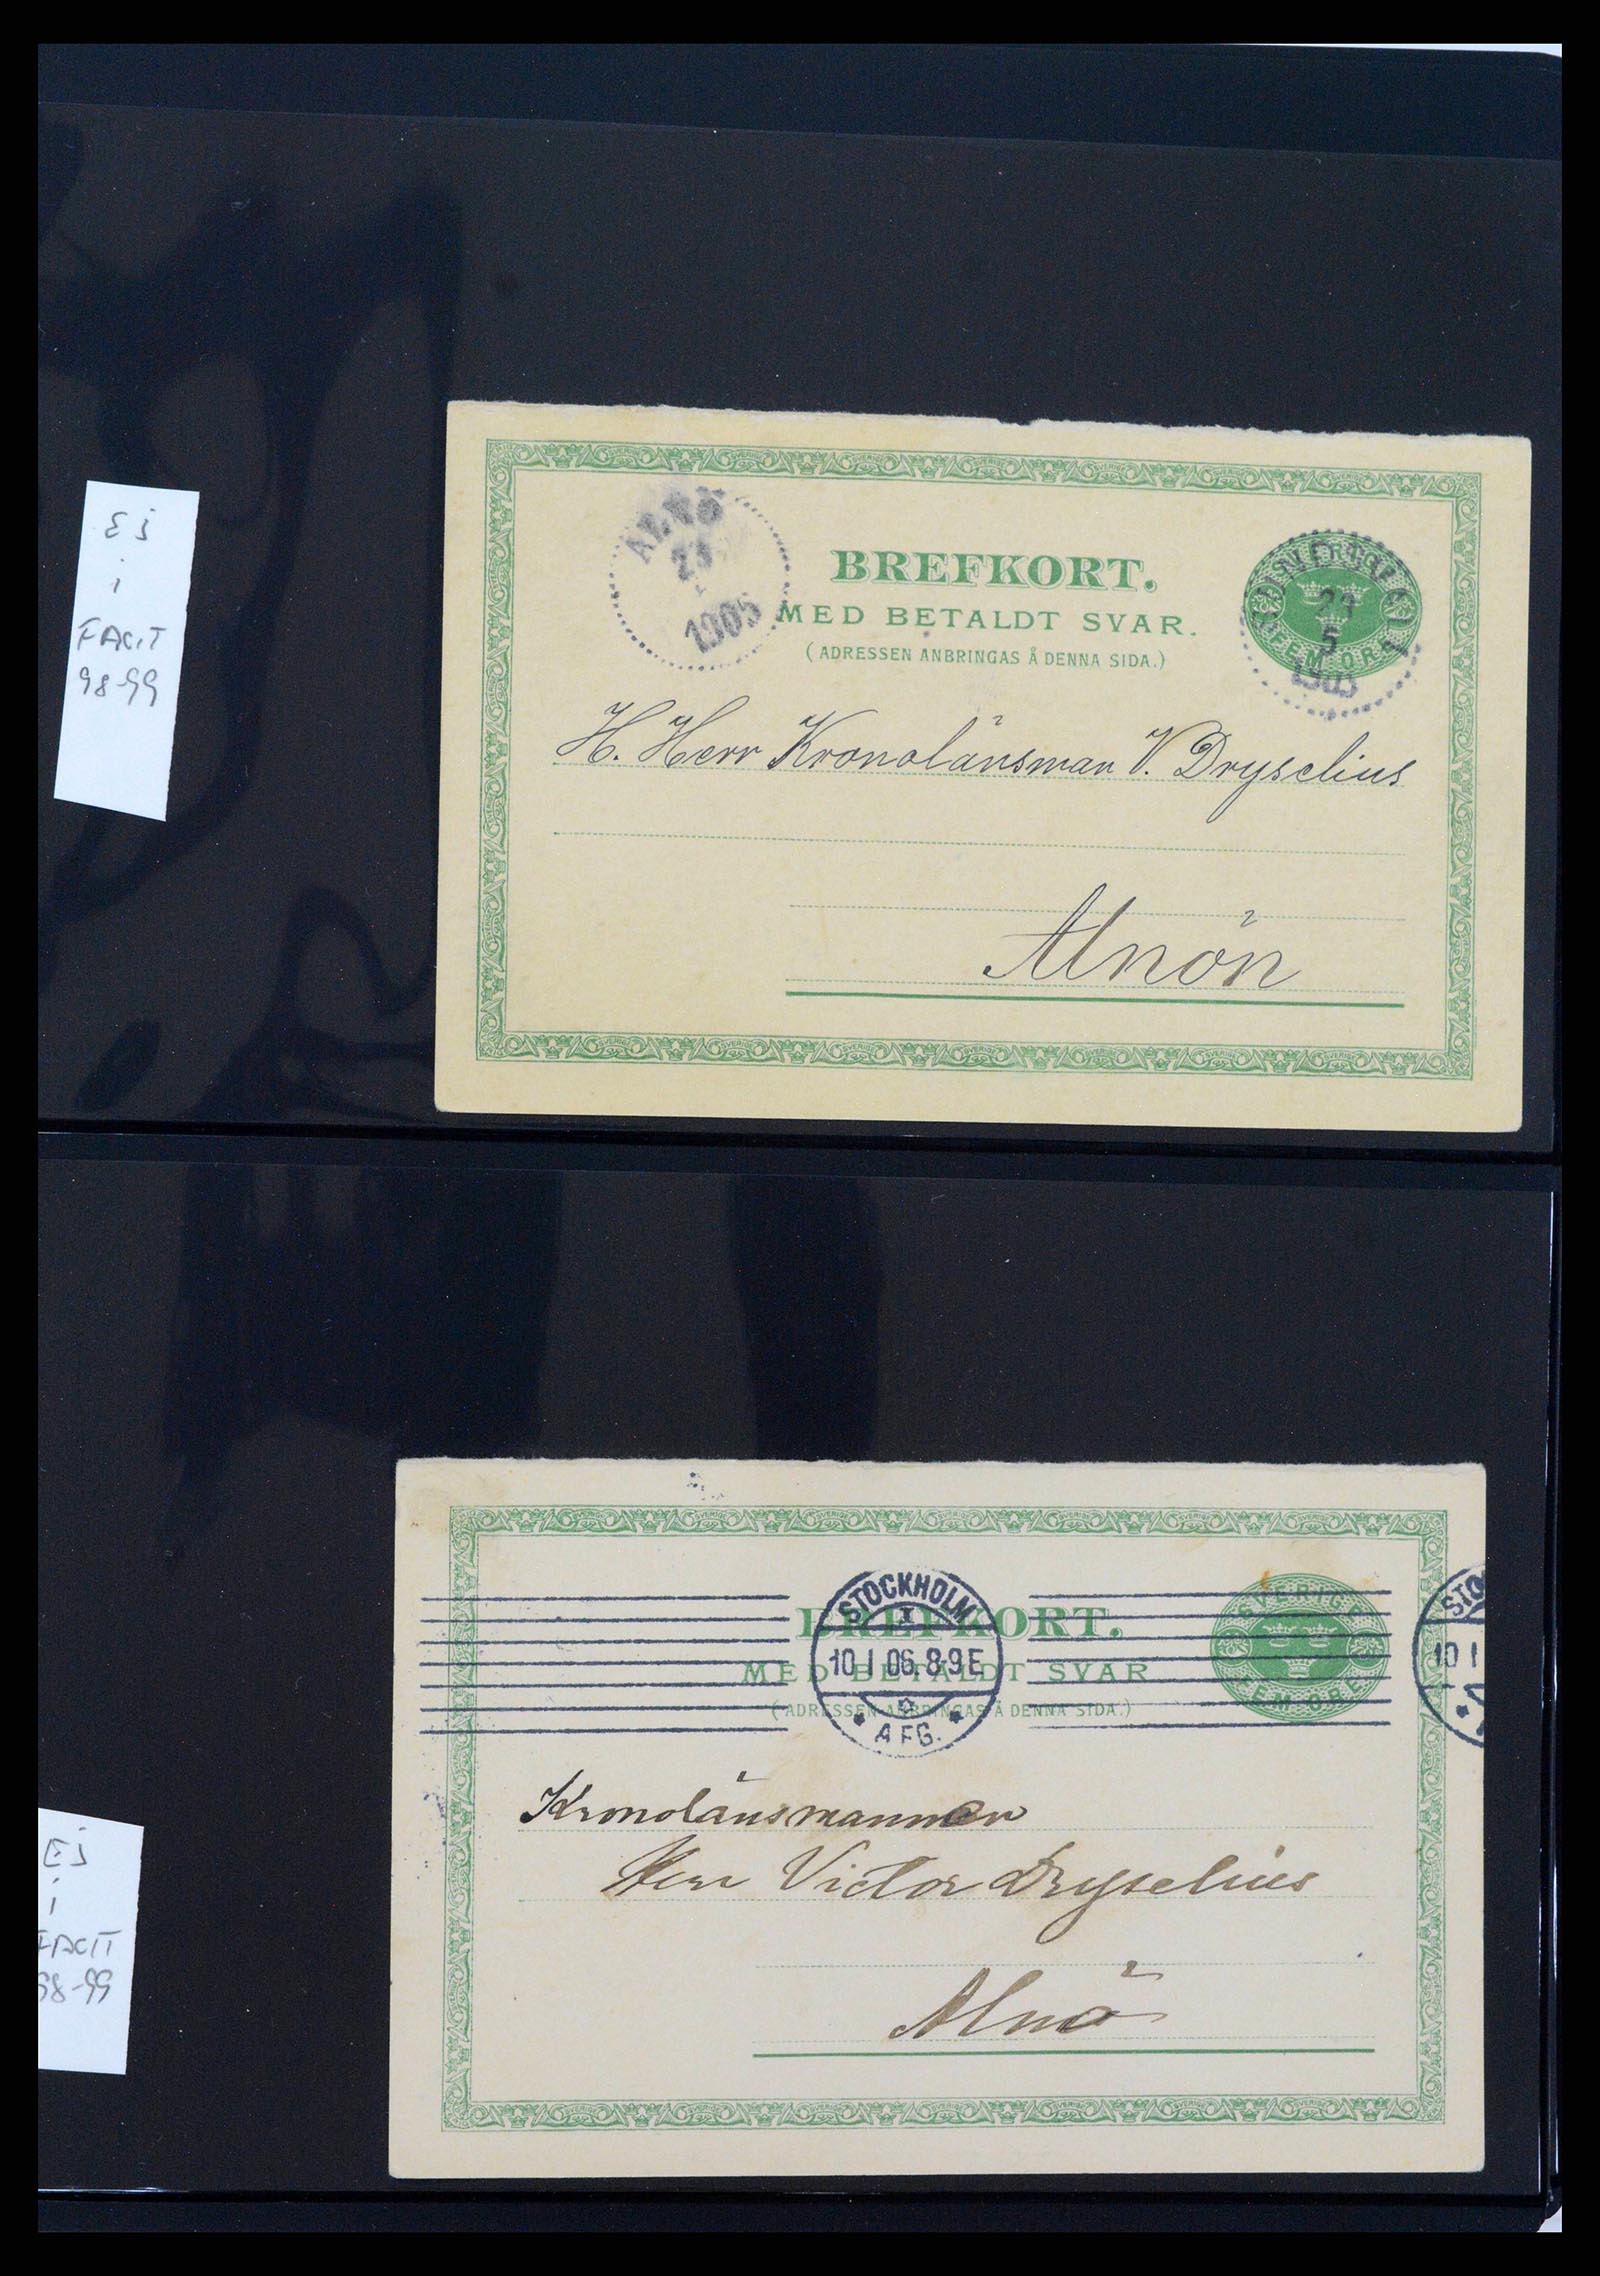 Ej
i
FACIT
98-99
ALNÖ
23
1905
BREFKORT.
MED BETALDT SVAR.
(ADRESSEN ANBRINGAS Å DENNA SIDA.)
SUNDSVALL
23
5
1905
FEM ÖRE
H. Herr Kronolänsman V. Dryselius
Alnön
Ej
i
FACIT
98-99
BREFKORT.
MED BETALDT SVAR
(ADRESSEN ANBRINGAS Å DENNA SIDA.)
STOCKHOLM
10 1 06. 8-9 E
* AFG. *
SVERIGE
FEM ÖRE
STO
10 1
Kronolänsmannen
Herr Victor Dryselius
Alnö